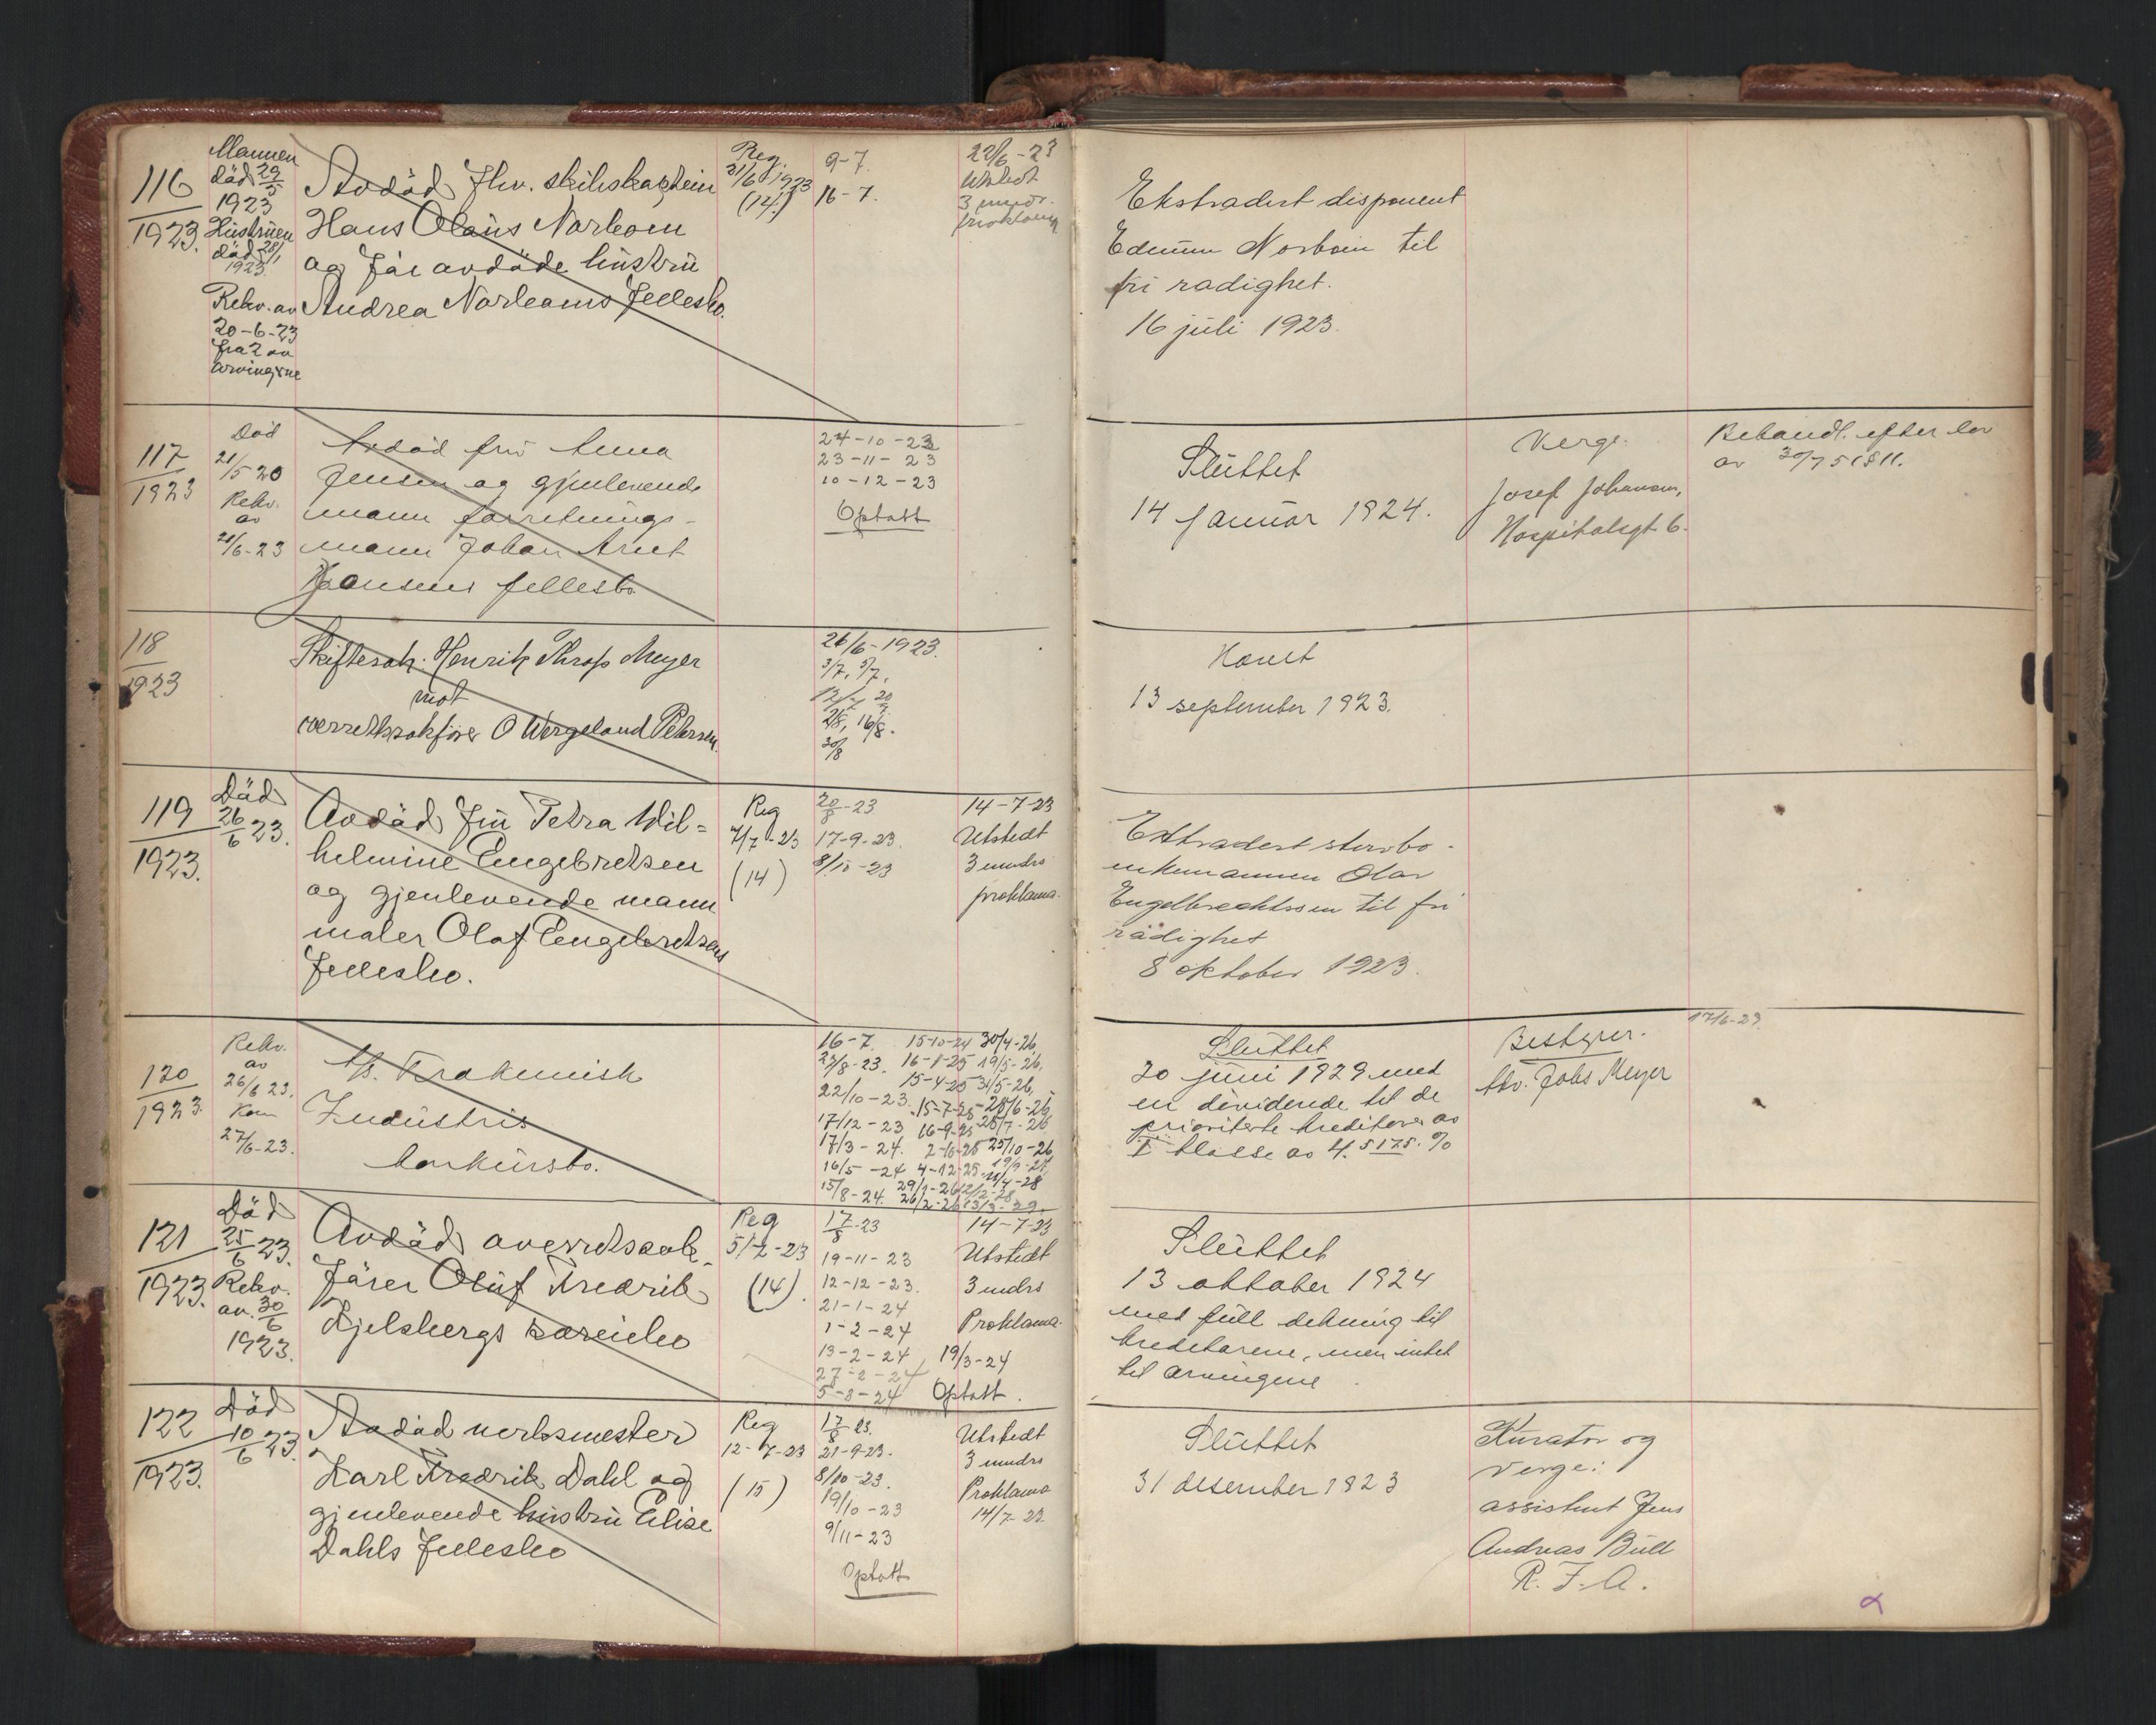 116
1923.
Mannen
död 29/5
1923
Hustruen
död 28/1
1923.
Rekv. av
20-6-23
fra 2 av
arvingerne
Avdöd Fhv. skibskaptein
Hans Olaus Norbom
og før avdöde hustru
Andrea Norboms Fellesbo.
Reg.
21/6 1923
(14.)
9-7.
16-7.
22/6-23
Utstedt
3 mndr.
proklama
Ekstradert disponent
Edmun Norbom til
fri radighet.
16 juli 1923.
117
1923
Död
21/5 20
Rekv.
av
21/6-23
Avdöd fru Anna
Jensen og gjenlevende
mann forretnings-
mann Johan Arnt
Jansens fellesbo
24-10-23
23-11-23
10-12-23
Optatt
Sluttet
14 januar 1924.
Verge:
Josef Johansen,
Hospitalsgt 6.
Behandl. efter lov
av 30/7 51 § 11.
118
1923
Skiftesak: Henrik Throp Meyer
mot
overretssakfører O Wergeland Petersen.
26/6-1923.
3/7, 5/7,
2/8, 16/8.
30/8
Hævet
13 september 1923.
119
1923.
Död
26/6 23.
Avdöd Fru Petra Wil=
helmine Engebretsen
og gjenlevende mann
maler Olaf Engebretsens
Fellesbo.
Reg
7/7-23
(14)
20/8-23
17-9-23.
8/10-23
14-7-23
Utstedt
3 mndrs
proklama.
Extradert stervbo-
enkemannen Olav
Engelbrechtssen til fri
rådighet
8 oktober 1923.
120
1923
Rekv.
av
26/6 23.
Kom
27/6-23.
A/s. Trakemisk
Industris
konkursbo.
16-7. 15-10-24 30/4-26
27/8-23. 16-1-25 19/5-26.
15-4-25 31/5-26,
22/10-23. 15-7-25 28/6-26,
17/12-23 16-9-25 28/7-26
17/3-24. 2-10-25 25/10-26
16/5-24 4-12-25
15/8-24. 26/2-26
Sluttet
20 juni 1929 med
en dividende til de
prioriterte kreditorer av
I klasse av 4.5175.%
Bestyrer.
Adv. Johs Meyer
17/6-29.
121
1923.
Död
25/6 23.
Rekv.
av. 30/6
1923.
Avdöd overretssak-
fører Oluf Fredrik
Kjelsbergs særeiebo
Reg
5/7-23
(14).
17/8-23
19-11-23
12-12-23.
21-1-24
1-2-24
13-2-24 19/3-24
27-2-24
5-8-24 Optatt.
14-7-23
Utstedt
3 mndrs
Proklama.
Sluttet
13 oktober 1924
med full dekning til
kreditorene, men intet
til arvingene.
122
1923.
Död
10/6 23.
Avdöd verksmester
Karl Fredrik Dahl og
gjenlevende hustru Elise
Dahls Fellesbo
Reg
12-7-23
(15)
17/8 23.
21-9-23.
8/10-23.
19/10-23
9/11-23
Optatt
Utstedt
3 mndrs
Proklama
14/7-23.
Sluttet
31 desember 1923
Kurator og
verge:
assistent Jens
Andreas Bull
R. F. A.